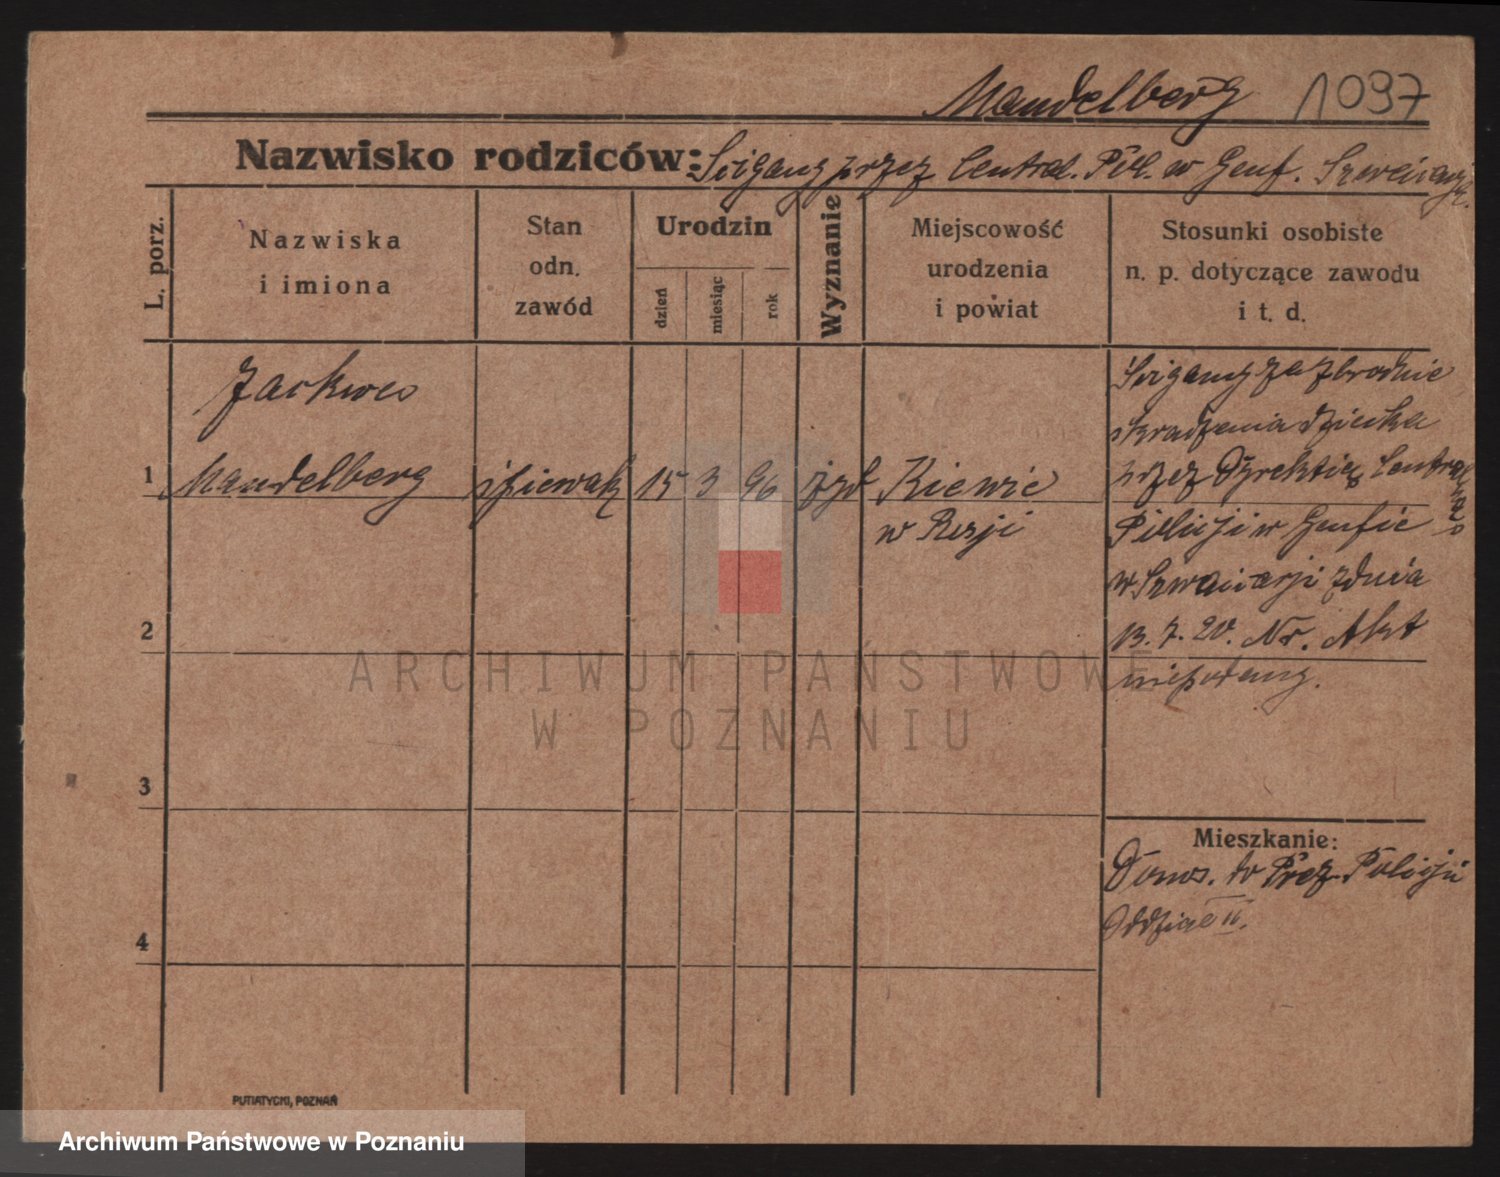 Mandelberg 1097
Nazwisko rodziców: Scigany przez Central. Pol. w Genf. Szwaicarji.
L. porz.
Nazwiska
i imiona
Stan
odn.
zawód
Urodzin
dzień
miesiąc
rok
Wyznanie
Miejscowość
urodzenia
i powiat
Stosunki osobiste
n. p. dotyczące zawodu
i t. d.
Jackweo
1 Mandelberg śpiewak 15 3 96 żyd Kiewie
w Rosji
Scigany za zbrodnie
skradzenia dziecka
przez Dyrektię Centralnego
Policji w Genfie
w Szwaicarji z dnia
13. 7. 20. Nr. Akt
niepodany.
2
3
4
Mieszkanie:
Donos. do Prez. Policji
Oddział II.
PUTIATYCKI, POZNAŃ
ARCHIWUM PAŃSTWOWE
W POZNANIU
Archiwum Państwowe w Poznaniu